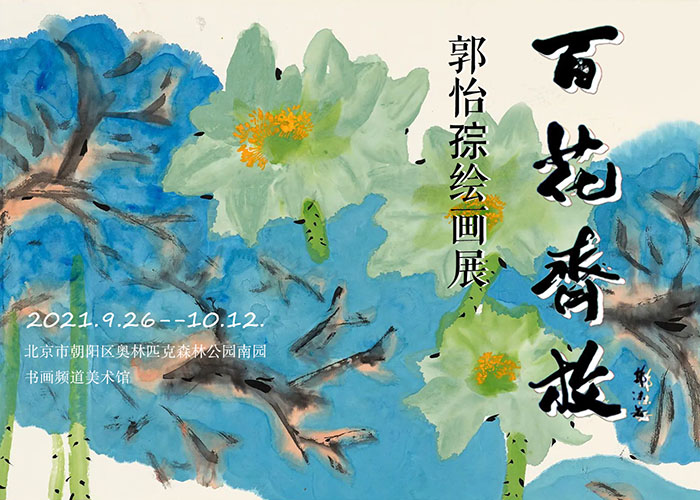 百花齐放
郭怡孮绘画展
2021.9.26--10.12.
北京市朝阳区奥林匹克森林公园南园
书画频道美术馆